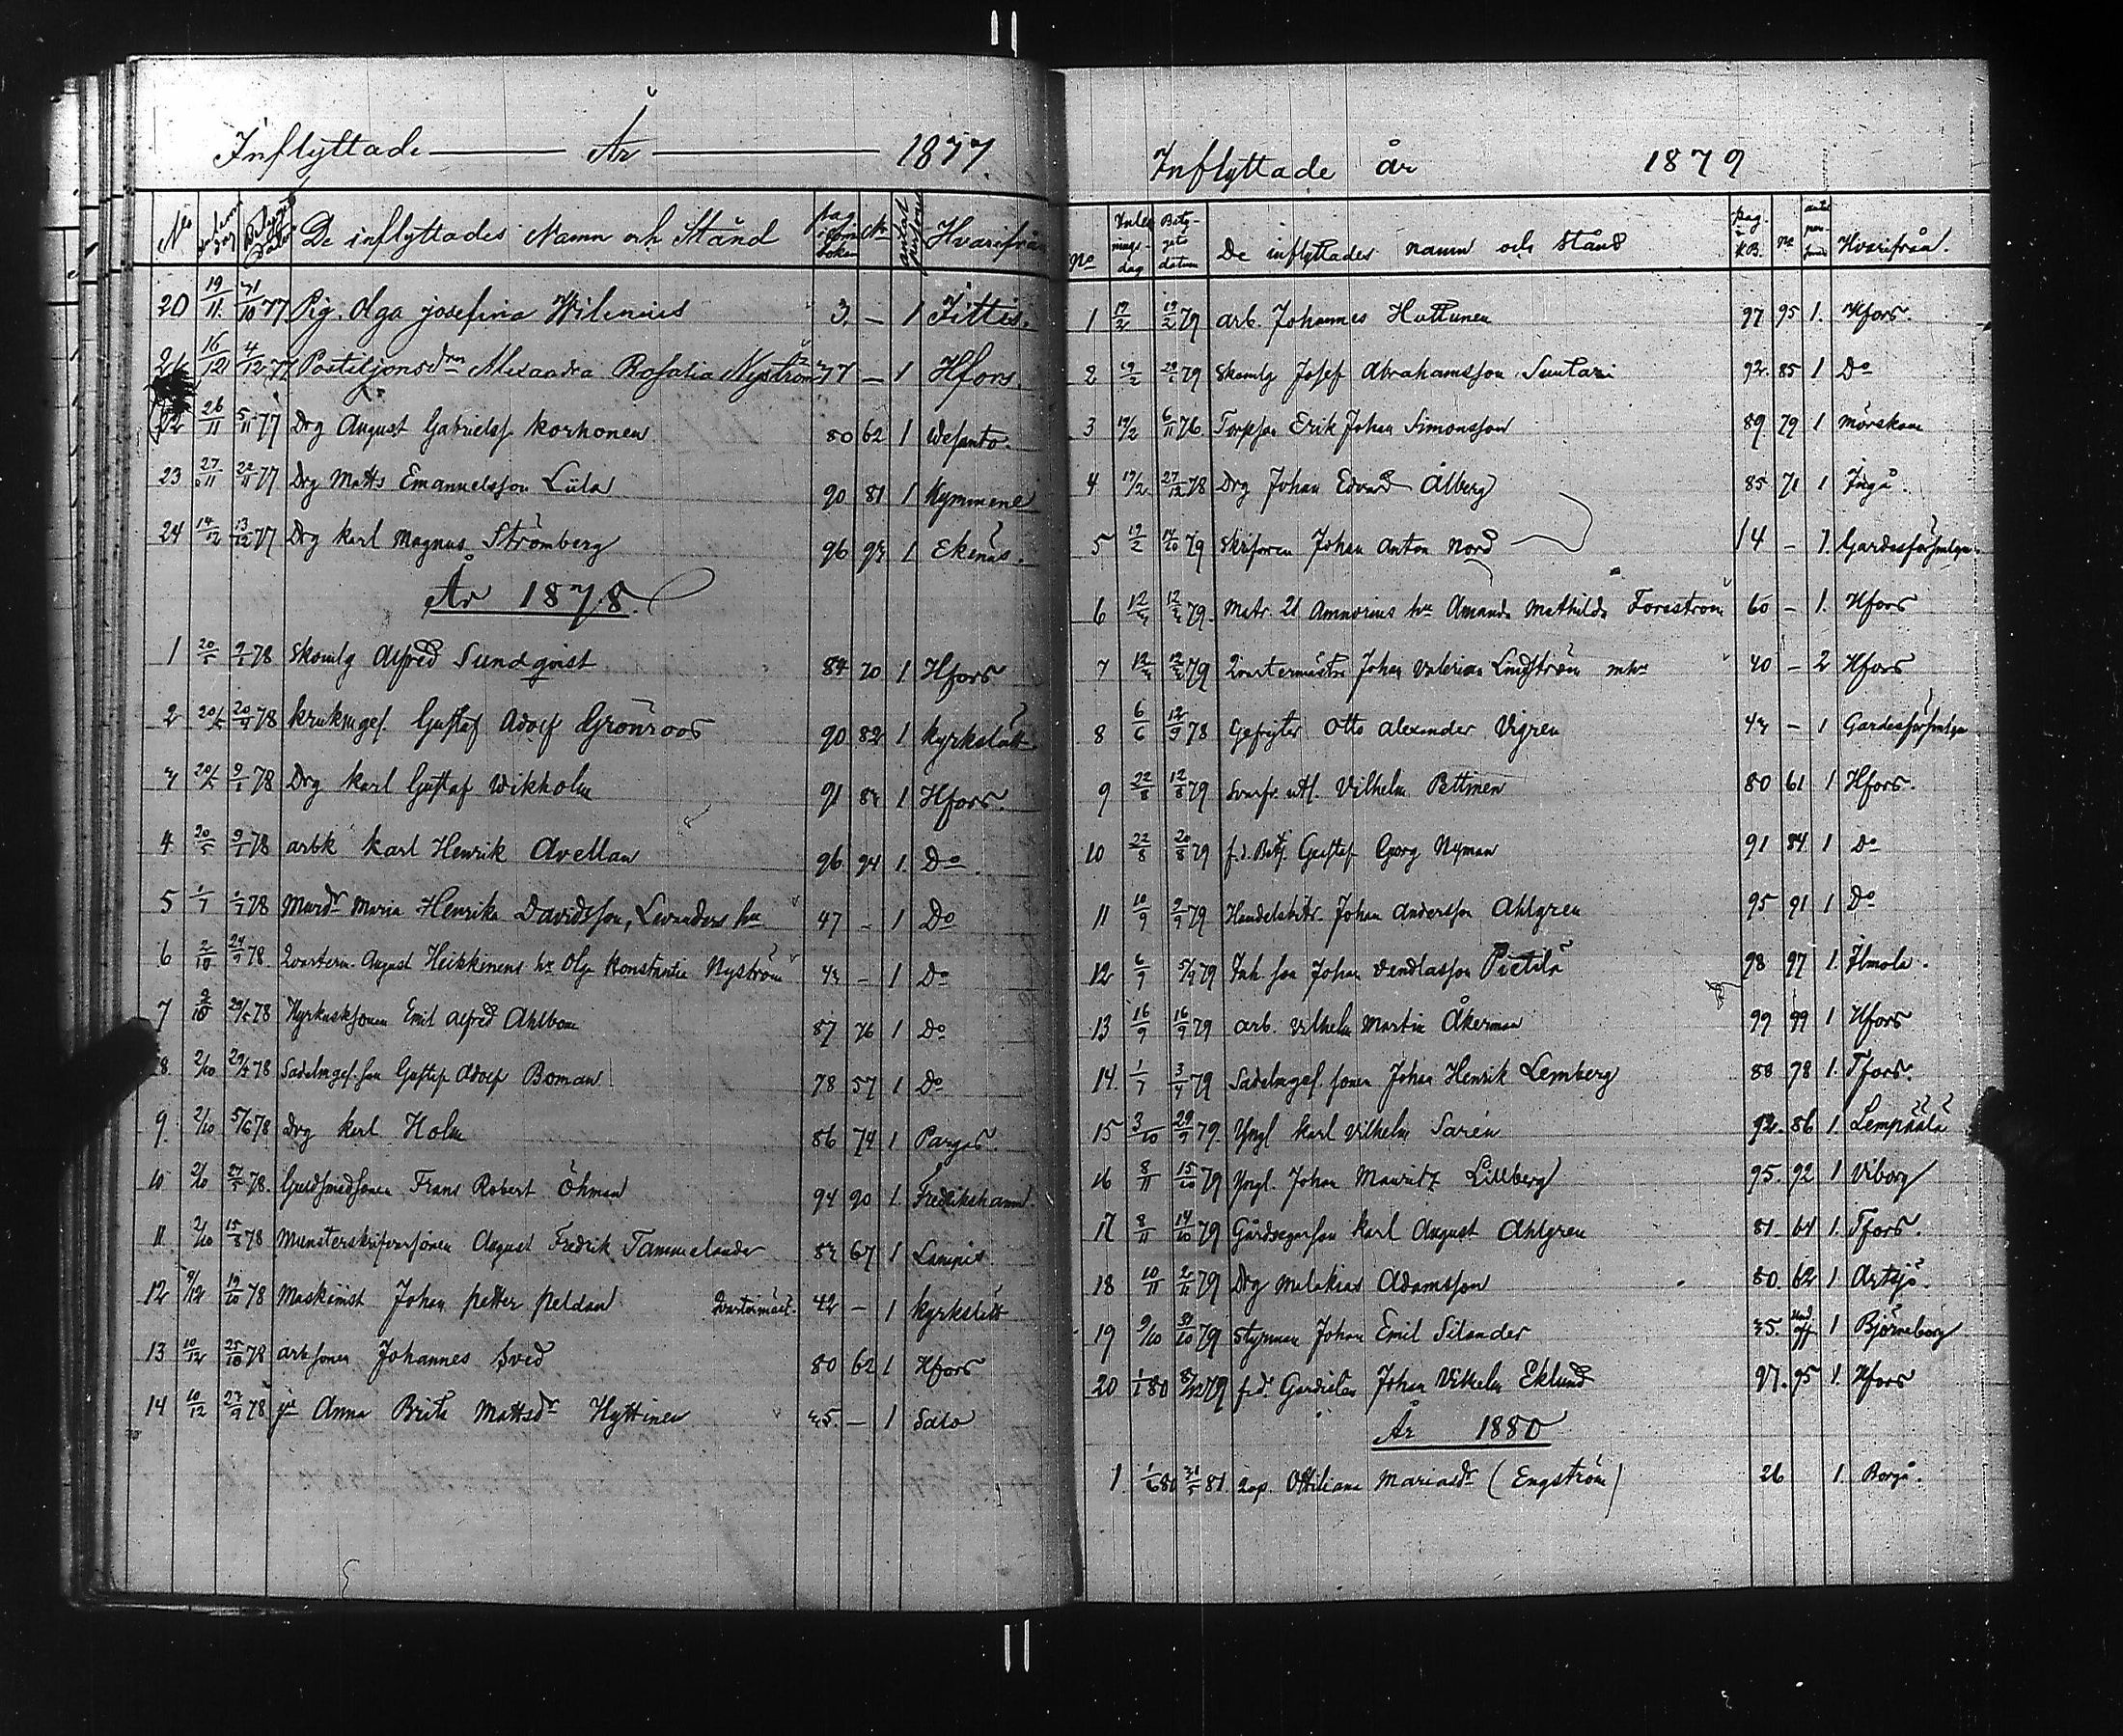 Inflyttade År 1877.
No Betygets Datum De inflyttades Namn och Stånd pag i kom. boken No antal personer Hvarifrån
20 19/11. 31/10 77 Pig. Olga Josefina Wilenius 3. — 1 Jittis.
21 16/12 4/12 77 Postiljonsdrn Alexandra Rosalia Nyström 77 — 1 Hfors.
22 26/11 5/11 77 Drg August Gabrielss. Korhonen 80 62 1 Wesanto.
23 27/11 22/11 77 Drg Matts Emanuelsson Liila 90 81 1 Kymmene
24 14/12 13/12 77 Drg Karl Magnus Strömberg 96 93 1 Ekenäs.
År 1878.
1 20/5 9/1 78 Skomlg Alfred Sundqvist 84 70 1. Hfors
2 20/5 20/9 78 Krukmges. Gustaf Adolf Grönroos 90 82 1 Kyrkslätt
3 20/5 9/1 78 Drg Karl Gustaf Wikholm 91 83 1 Hfors.
4 20/5 9/1 78 arbk Karl Henrik Avellan 96. 94 1. Do.
5 1/7 1/7 78 Murdr Maria Henrika Davidsson, Levanders hu 47 – 1 Do
6 2/10 24/9 78. Qvarterm. August Heikkinens hu Olga Konstantia Nyström 43 – 1 Do
7 2/10 29/5 78 Hyrkusksonen Emil Alfred Ahlbom 87 76 1 Do
8. 2/10 29/4 78 Sadelmges. son Gustaf Adolf Boman 78 57 1 Do
9. 2/10 5/6 78 Drg Karl Holm 86 74 1. Pargas.
10 2/10 27/5 78. Guldsmedsonen Frans Robert Öhman 94 90 1. Fredrikshamn.
11. 2/10 15/8 78 Munsterskrifvarsonen August Fredrik Tammelander 83 67 1 Lampis.
12 9/12 19/10 78 Maskinist Johan Petter Peldan Qvartermäst. 42 – 1 Kyrkslätt
13 10/12 25/10 78 arb sonen Johannes Sved 80 62 1 Hfors
14 10/12 27/9 78 pa Anna Brita Mattsdr Hyttinen 35. – 1 Salo
Inflyttade år 1879
No Inlemnings-dag Bety-gets datum De inflyttades namn och stånd pag. i K.B. No antal per-soner Hvarifrån.
1 17/2 13/2 79 arb. Johannes Huttunen 97 95 1. Hfors.
2 19/2 79 Skomlg Josef Abrahamsson Suutari 92. 85 1 Do
3 19/2 6/11 76. Torpson Erik Johan Simonsson 89. 79 1 Mörskom
4 19/2 27/12 78 Drg Johan Edvard Ålberg 85 71 1 Ingå.
5 19/2 79 Skrifvaren Johan Anton Nord 14 – 1. Gardesförsmlgn.
6 12/3 12/3 79. Matr. 21 Ammorins hu Amanda Mathilda Forsström 60 – 1. Hfors
7 12/3 12/3 79 Qvartermästare Johan Valerian Lindström mhu 40 – 2 Hfors
8 6/6 12/9 78 Gefrejter Otto Alexander Vigren 43 – 1 Gardesförsmlgn
9 22/8 12/8 79 Vilhelm Pettinen 80 61 1 Hfors.
10 22/8 20/8 79 f.d. Betj. Gustaf Georg Nyman 91 84. 1 Do
11 10/9 9/9 79 Handelsbitr. Johan Andersson Ahlgren 95 91 1 Do
12 6/9 5/9 79 Inh. son Johan Vendlasson Pietilä 98 97 1. Ilmola.
13 16/9 16/9 79 arb. Vilhelm Martin Åkerman 99 99 1 Hfors
14. 1/7 3/7 79 Sadelmges. sonen Johan Henrik Lemberg 88 78 1. Tfors.
15 3/10 29/9 79. Yngl Karl Vilhelm Sarén 92. 86 1. Lempäälä
16 8/11 15/10 79 Yngl. Johan Mauritz Lillberg 95. 92 1 Viborg
17 8/11 14/10 79 Gårdsegarson Karl August Ahlgren 81. 64 1. Tfors.
18 10/11 2/11 79 Drg Malakias Adamsson 80. 62 1 Artsjö.
19 9/10 31/10 79 Styrman Johan Emil Silander 35. Und. off 1 Björneborg
20 1/1 80 8/12 79 f.d. Gardisten Johan Vilhelm Eklund 97. 95 1. Hfors
År 1880
1. 1/6 80 31/5 81. Qop. Ottiliana Mariasdr (Engström) 26 1. Borgå.